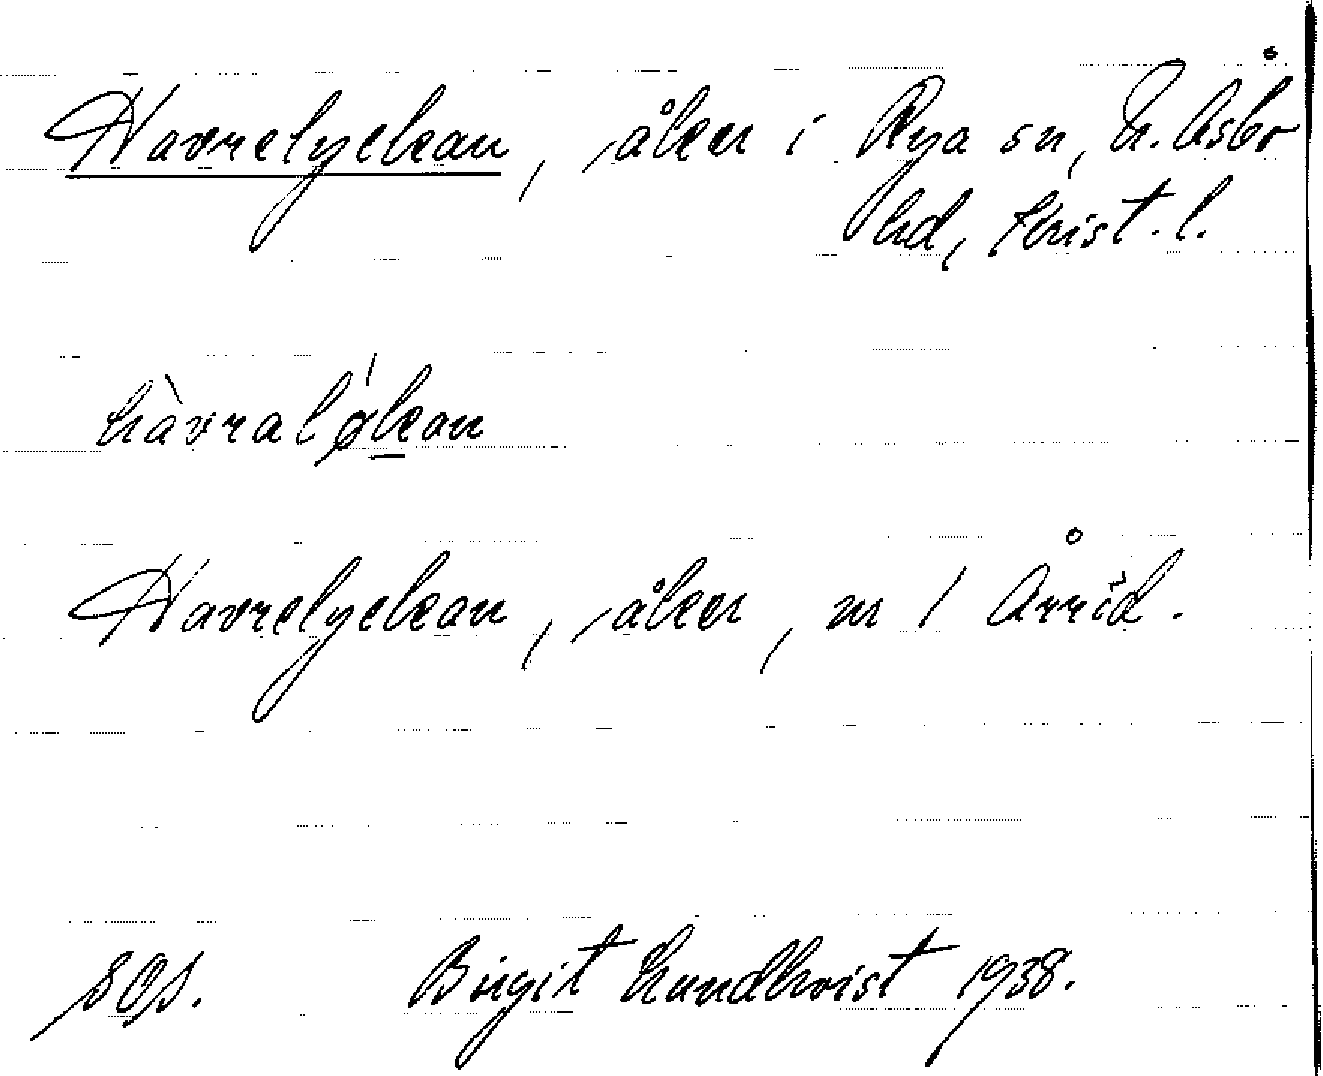 Havrelyckan, åker i Rya sn, N. Åsbo
hd, Krist. l.
hàvraløkan
Havrelyckan, åker, nr 1 Årröd.
SOS. Birgit Lundkvist 1938.